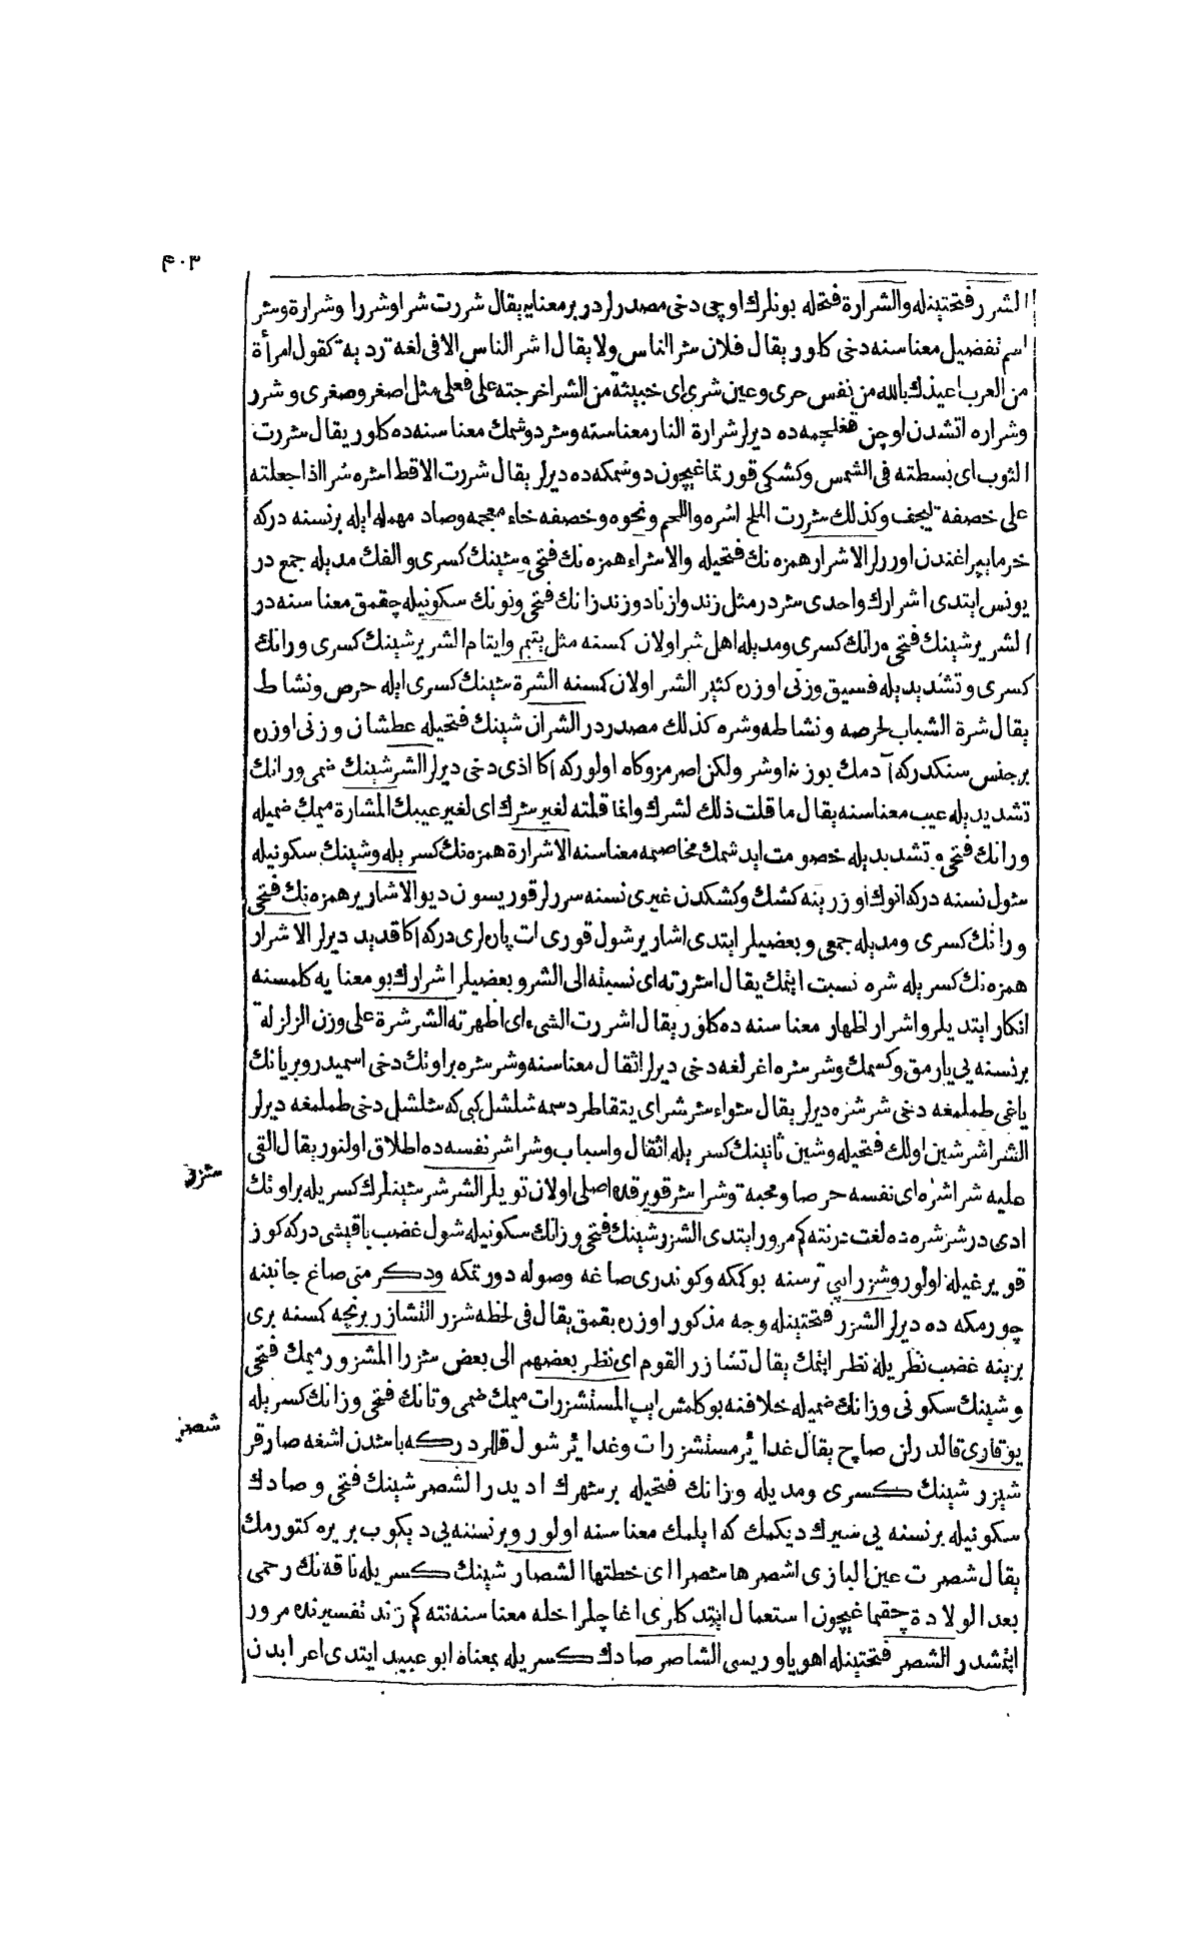 ٤٠٣
الشرر فتحتينله والشرارة فتحله بونلرك اوچى دخى مصدرلردر بر معنايه يقال شررت شرا وشررا وشرارة وشر
اسم تفضيل معناسنه دخى كلور يقال فلان شر الناس ولا يقال اشر الناس الا فى لغة ردية كقول امرأة
من العرب اعيذك بالله من نفس حرى وعين شرى اى خبيثة من الشر اخرجته على فعلى مثل اصغر وصغرى وشرر
وشراره اتشدن اوچن ديرلر شرارة النار معناسنه وشر دوشمك معناسنه ده كلور يقال شررت
الثوب اى بسطته فى الشمس وكشكى قورتماغيچون دوشمكه ده ديرلر يقال شررت الاقط اشره شرا اذا جعلته
على خصفة ليجف وكذلك شررت الملح اشره واللحم ونحوه وخصفه خاء معجمه وصاد مهمله ايله برنسنه دركه
خرما يپراغندن اوررلر الاشرار همزه نك فتحيله والاشراء همزه نك فتحى وشينك كسرى والفك مديله جمع در
يونس ايتدى اشرارك واحدى شردر مثل زند وازناد وزند زانك فتحى ونونك سكونيله چقمق معناسنه در
الشرير شينك فتحى ورانك كسرى ومديله اهل شر اولان كسنه مثل يتيم وايتام الشرير شينك كسرى ورانك
كسرى وتشديديله فسيق وزنى اوزره كثير الشر اولان كسنه الشرة شينك كسرى ايله حرص ونشاط
يقال شرة الشباب لحرصه ونشاطه وشره كذلك مصدردر الشران شينك فتحيله عطشان وزنى اوزره
برجنس سنكدركه آدمك يوزينه اوشر ولكن اصرمز وكاه اولوركه اكا اذى دخى ديرلر الشر شينك ضمى ورانك
تشديديله عيب معناسنه يقال ما قلت ذلك لشرك وانما قلته لغير شرك اى لغير عيبك المشارة ميمك ضميله
ورانك فتحى وتشديديله خصومت ايدشمك مخاصمه معناسنه الاشرارة همزه نك كسريله وشينك سكونيله
شول نسنه دركه انوك اوزرينه كشك وكشكدن غيرى نسنه سررلر قوريسون ديو الاشارير همزه نك فتحى
ورانك كسرى ومديله جمعى وبعضيلر ايتدى اشارير شول قورى ات پاره لرى دركه اكا قديد ديرلر الاشرار
همزه نك كسريله شره نسبت ايتمك يقال اشررته اى نسبته الى الشر وبعضيلر اشرارك بو معنايه كلمسنه
انكار ايتديلر واشرار اظهار معناسنه ده كلور يقال اشررت الشىء اى اظهرته الشرشرة على وزن الزلزلة
برنسنه يى يارمق وكسمك وشرشره اغرلغه دخى ديرلر اثقال معناسنه وشرشره بر اوتك دخى اسميدر وبريانك
ياغى طملمغه دخى شرشره ديرلر يقال شواء شرشر اى يتقاطر دسمه شلشل كبى كه شلشل دخى طملمغه ديرلر
الشراشر شين اولك فتحيله وشين ثانينك كسريله اثقال واسباب وشراشر نفسه ده اطلاق اولنور يقال القى
عليه شراشره اى نفسه حرصا ومحبة وشراشر قويرقده اصلى اولان تويلر الشرشر شينلرك كسريله بر اوتك
ادى در شرشره ده لغت درنته كم مرور ايتدى الشزر شينك فتحى وزانك سكونيله شول غضب باقيشى دركه كوز
قويرغيله اولور وشزر ايپى ترسنه بوكمكه وكوندرى صاغه وصوله دورتمكه ودكرمنى صاغ جانبنه
چورمكه ده ديرلر الشزر فتحتينله وجه مذكور اوزره بقمق يقال فى لحظه شزر التشازر برنجه كسنه برى
برينه غضب نظريله نظر ايتمك يقال تشازر القوم اى نظر بعضهم الى بعض شزرا المشزور ميمك فتحى
وشينك سكونى وزانك ضميله خلافنه بوكلمش ايپ المستشزرات ميمك ضمى وتانك فتحى وزانك كسريله
يوقارى قالدرلن صاچ يقال غدائر مستشزرات وغدائر شول دركه باشدن اشغه صارقر
شيزر شينك كسرى ومديله وزانك فتحيله بر شهرك اديدر الشصر شينك فتحى وصادك
سكونيله برنسنه يى سيرك ديكمك كه ايلمك معناسنه اولور وبرنسنه يى ديكوب بريره كتورمك
يقال شصرت عين البازى اشصرها شصرا اى خطتها الشصار شينك كسريله ناقه نك رحمى
بعد الولادة چقماغيچون استعمال ايتدكلرى اغاچلر اخله معناسنه نته كم زند تفسيرنده مرور
ايتمشدر الشصر فتحتينله اهو ياوريسى الشاصر صادك كسريله بمعناه ابو عبيد ايتدى اعرابدن
شزر
شصر